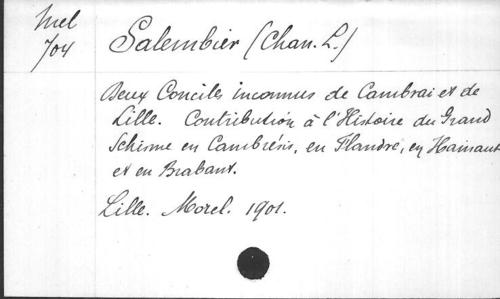 Mel
704
Salembier (Chan. L.)
Deux Conciles inconnus de Cambrai et de
Lille. Contribution à l'Histoire du Grand
Schisme en Cambrésis, en Flandre, en Hainaut
et en Brabant.
Lille. Morel. 1901.